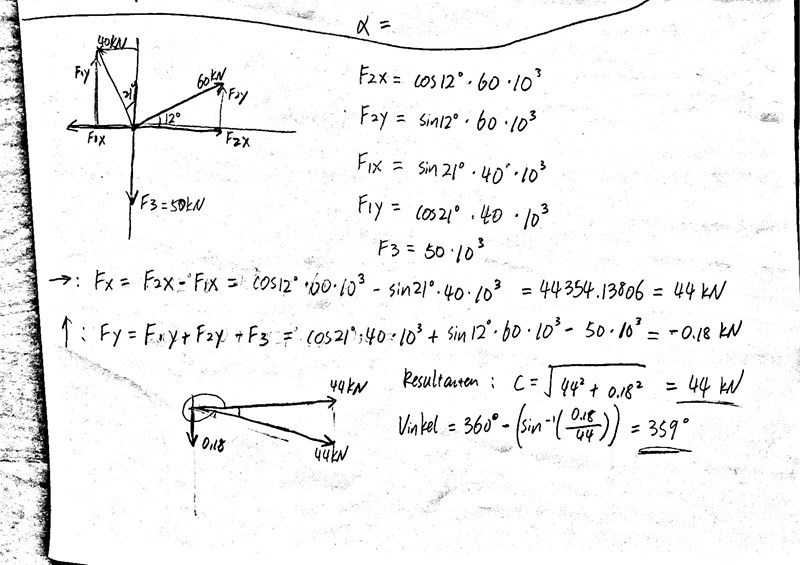 α =
40kN
F1y
21°
60kN
F2y
12°
F1x
F2x
F3 = 50kN
F2x = cos12° · 60 · 10³
F2y = sin12° · 60 · 10³
F1x = sin21° · 40 · 10³
F1y = cos21° · 40 · 10³
F3 = 50 · 10³
→: Fx = F2x - F1x = cos12° · 60 · 10³ - sin21° · 40 · 10³ = 44354.13806 = 44 kN
↑: Fy = F1y + F2y + F3 = cos21° · 40 · 10³ + sin12° · 60 · 10³ - 50 · 10³ = -0.18 kN
Resultanten: C = √(44² + 0.18²) = 44 kN
Vinkel = 360° - (sin⁻¹(0.18/44)) = 359°
44kN
0.18
44kN